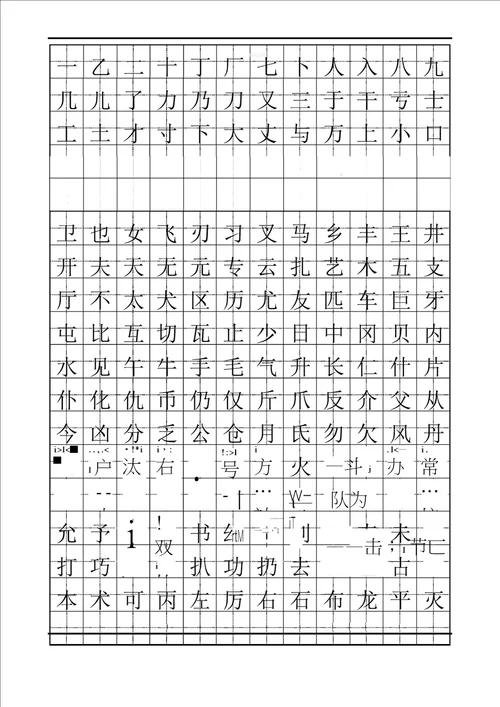 一乙二十丁厂七卜人入八九
几儿了力乃刀又三于干亏士
工土才寸下大丈与万上小口
卫也女飞刃习叉马乡丰王井
开夫天无元专云扎艺木五支
厅不太犬区历尤友匹车巨牙
屯比互切瓦止少目中冈贝内
水见午牛手毛气升长仁什片
仆化仇币仍仅斤爪反介父从
今凶分乏公仓月氏勿欠风丹
户汰右号方火一斗办常
队为
允予i双书刂未
击节
打巧扒功扔去古
本术可丙左厉右石布龙平灭